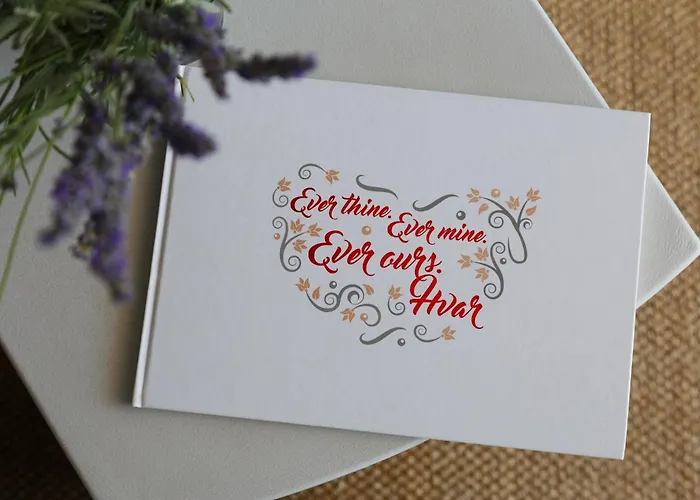 Ever thine.
Ever mine.
Ever ours.
Hvar